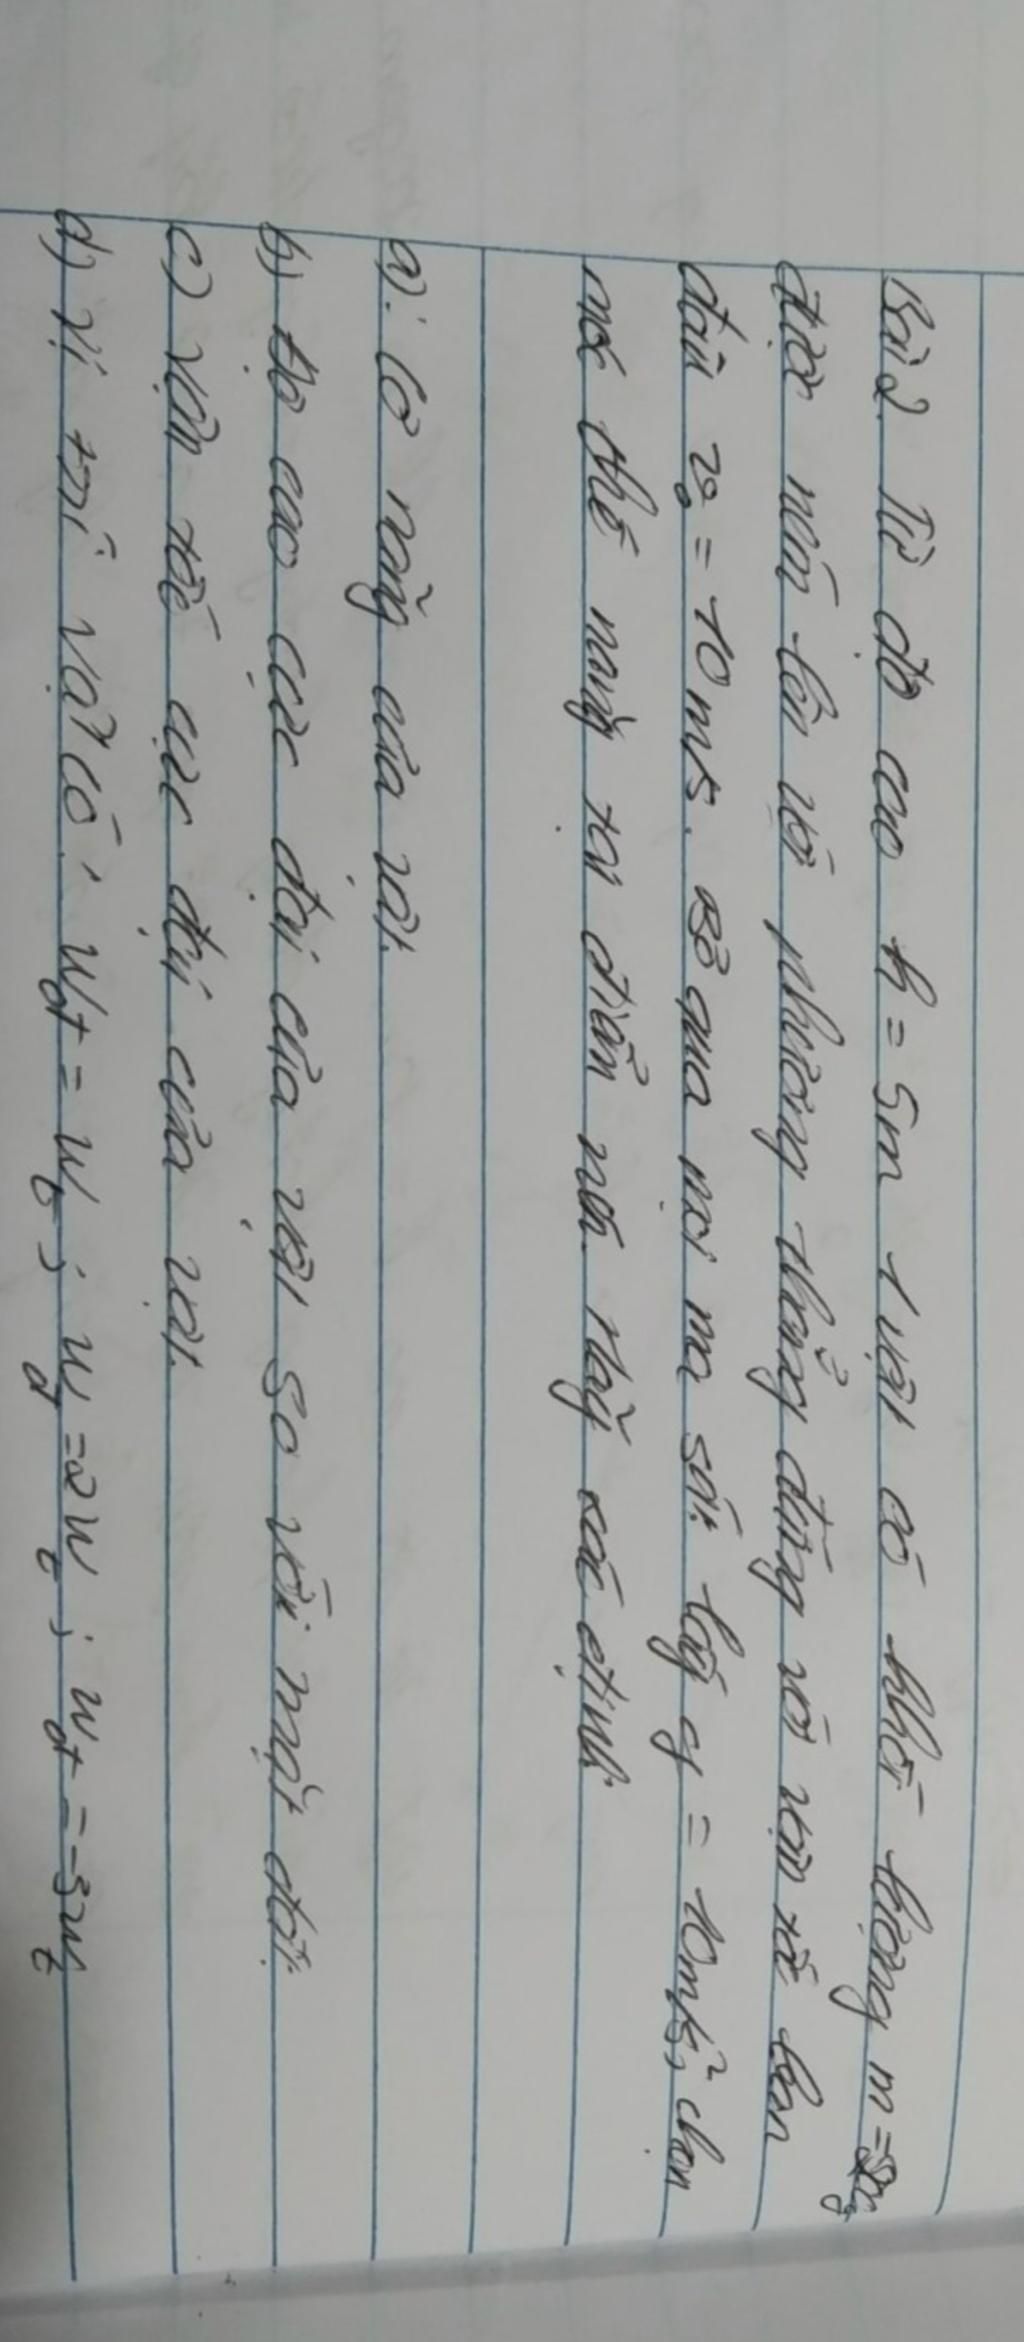 Bài 2. Từ độ cao h = 5m 1 vật có khối lượng m =
được ném lên với phương thẳng đứng với vận tốc ban
đầu v₀ = 10 m/s. Bỏ qua mọi ma sát. lấy g = 10m/s², chọn
mốc thế năng tại điểm ném. Hãy xác định.
a). Cơ năng của vật.
b) Độ cao cực đại của vật so với mặt đất.
c) Vận tốc cực đại của vật.
d) Vị trí vật có: Wđ = Wt ; Wđ = 2Wt ; Wđ = -3Wt